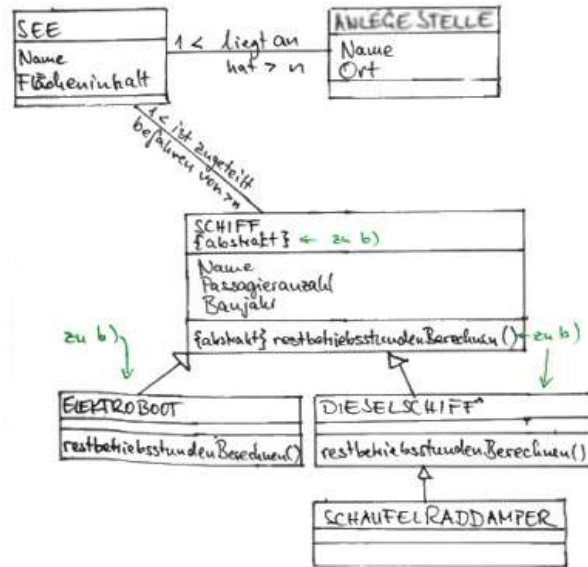 SEE
Name
Flächeninhalt
1 < liegt an
hat > n
ANLEGESTELLE
Name
Ort
1 < ist zugeteilt
befahren von > n
SCHIFF
{abstrakt} ← zu b)
Name
Passagieranzahl
Baujahr
{abstrakt} restbetriebsstundenBerechnen() ← zu b)
zu b)
ELEKTROBOOT
restbetriebsstundenBerechnen()
DIESELSCHIFF
restbetriebsstundenBerechnen()
SCHAUFELRADDAMPER